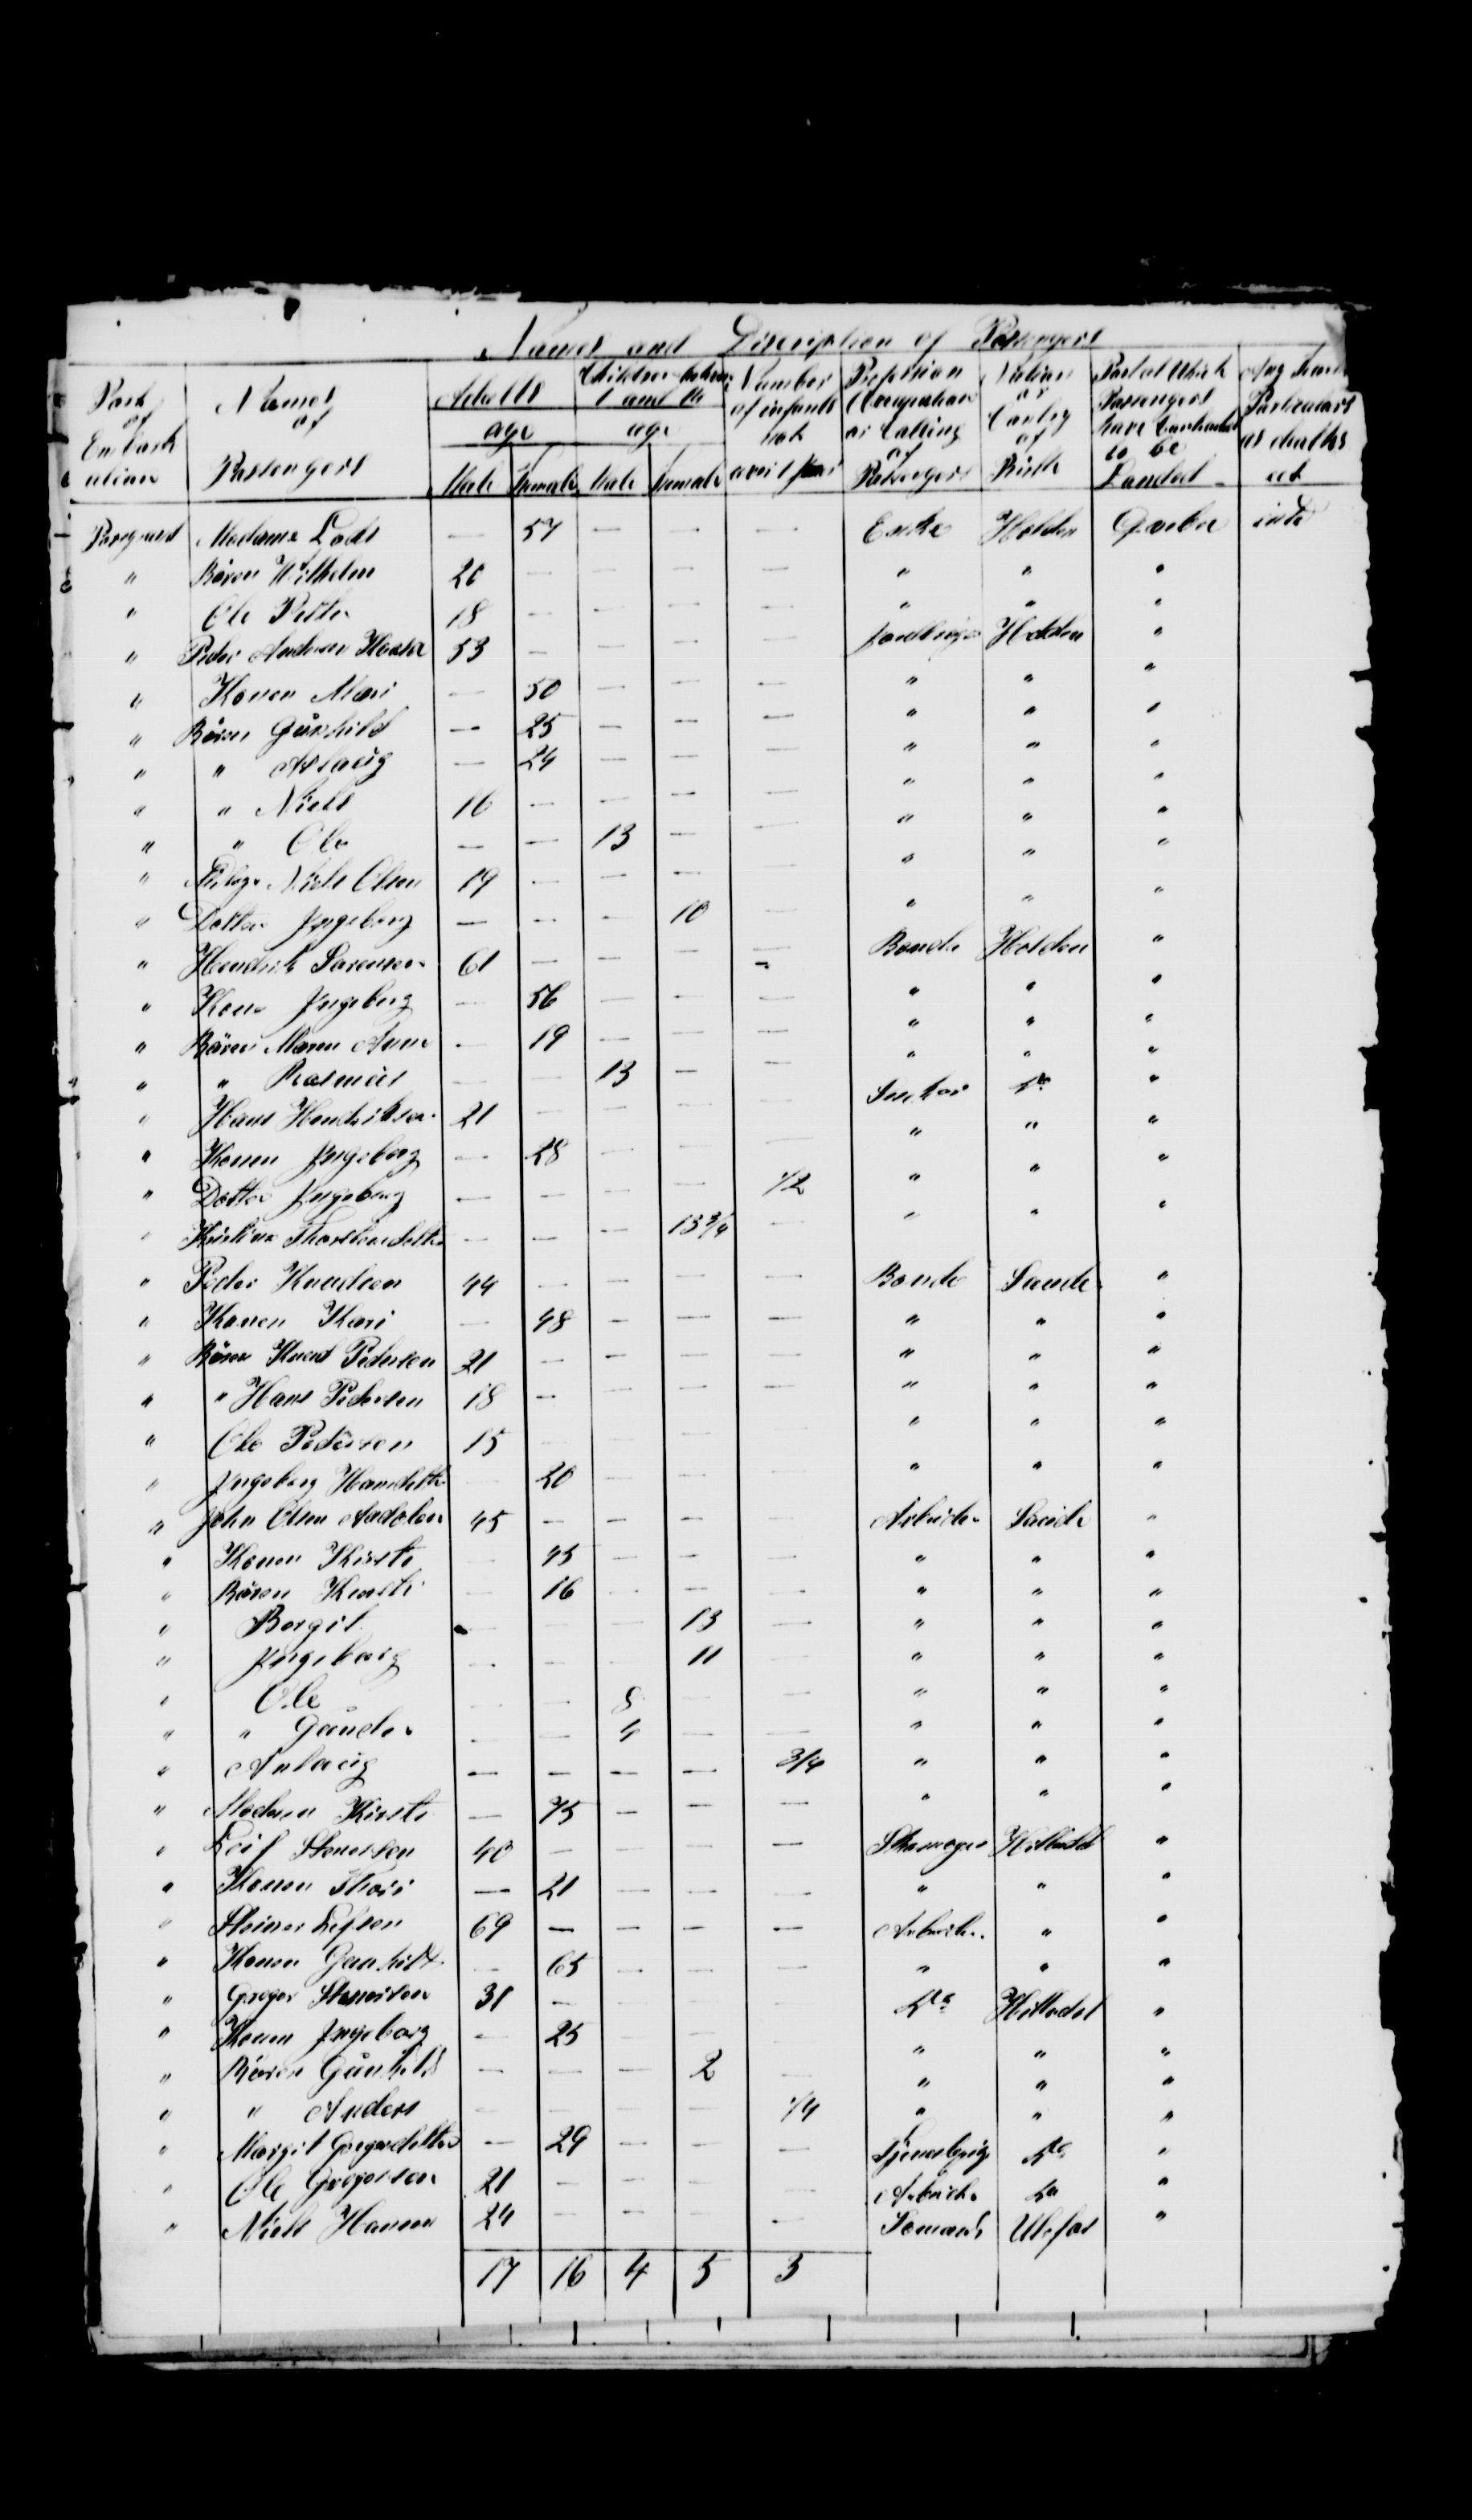 Names and Discription of Passengers
Port of Embarkation Names of Passengers Adults age Male Female Children between 1 and 14 age Male Female Number of infants not over 1 year Profession Occupation or Calling of Passengers Nation or Contry of Birth Port at Which Passengers have Contracted to be Landed Any Particulars as deaths
Madame — 57 — — — Enke Holden Qvebec
" Bören Wilhelm 20 — — — — " " "
" Ole Petter 18 — — — — " " "
" Peder Andersen 53 — — — — Holden "
" Konen Mari — 50 — — — " " "
" Bören Gunhild — 25 — — — " " "
" " Aslaug — 24 — — — " " "
" " Niels 16 — — — — " " "
" " Ole — — 13 — — " " "
" Niels Olsen 19 — — — — " " "
" Dotter Ingeborg — — — 10 — " " "
" Hendrik Sorensen 61 — — — — Bonde Holden "
" Kone Ingeborg — 56 — — — " " "
" Bören Maren Anne — 19 — — — " " "
" " Rasmus — — 13 — — " " "
" Hans Hendriksen 21 — — — — Do "
" Konen Ingeborg — 28 — — — " " "
" Dotter Ingeborg — — — — 1/2 " " "
" — — — 13 3/4 — " " "
" Peder Knudsen 44 — — — — Bonde Saude "
" Konen Kari — 48 — — — " " "
" Bören Knud Pedersen 21 — — — — " " "
" " Hans Pedersen 18 — — — — " " "
" Ole Pedersen 15 — — — — " " "
" Ingeborg Hansdatter — 20 — — — " " "
" John Olsen 45 — — — — Arbeider Saude "
" Konen Kirsti — 45 — — — " " "
" Bören — 16 — — — " " "
" Borgit — — — 13 — " " "
" Ingeborg — — — 11 — " " "
" Ole — — 8 — — " " "
" " Gunder — — 4 — — " " "
" Aslaug — — — — 3/4 " " "
" Kirsti — 75 — — — " " "
" Leif Stenersen 40 — — — — Hitterdal "
" Konen — 21 — — — " " "
" 69 — — — — Arbeider " "
" Konen Gunhild — 65 — — — " " "
" Greger Stenersen 31 — — — — Do Hitterdal "
" Konen Ingeborg — 25 — — — " " "
" Bören Gunhild — — — 2 — " " "
" " Anders — — — — 1/4 " " "
" Margit Gregersdatter — 29 — — — Do "
" Ole Gregersen 21 — — — — Arbeider Do "
" Niels Hansen 24 — — — — Ulefos "
17 16 4 5 3